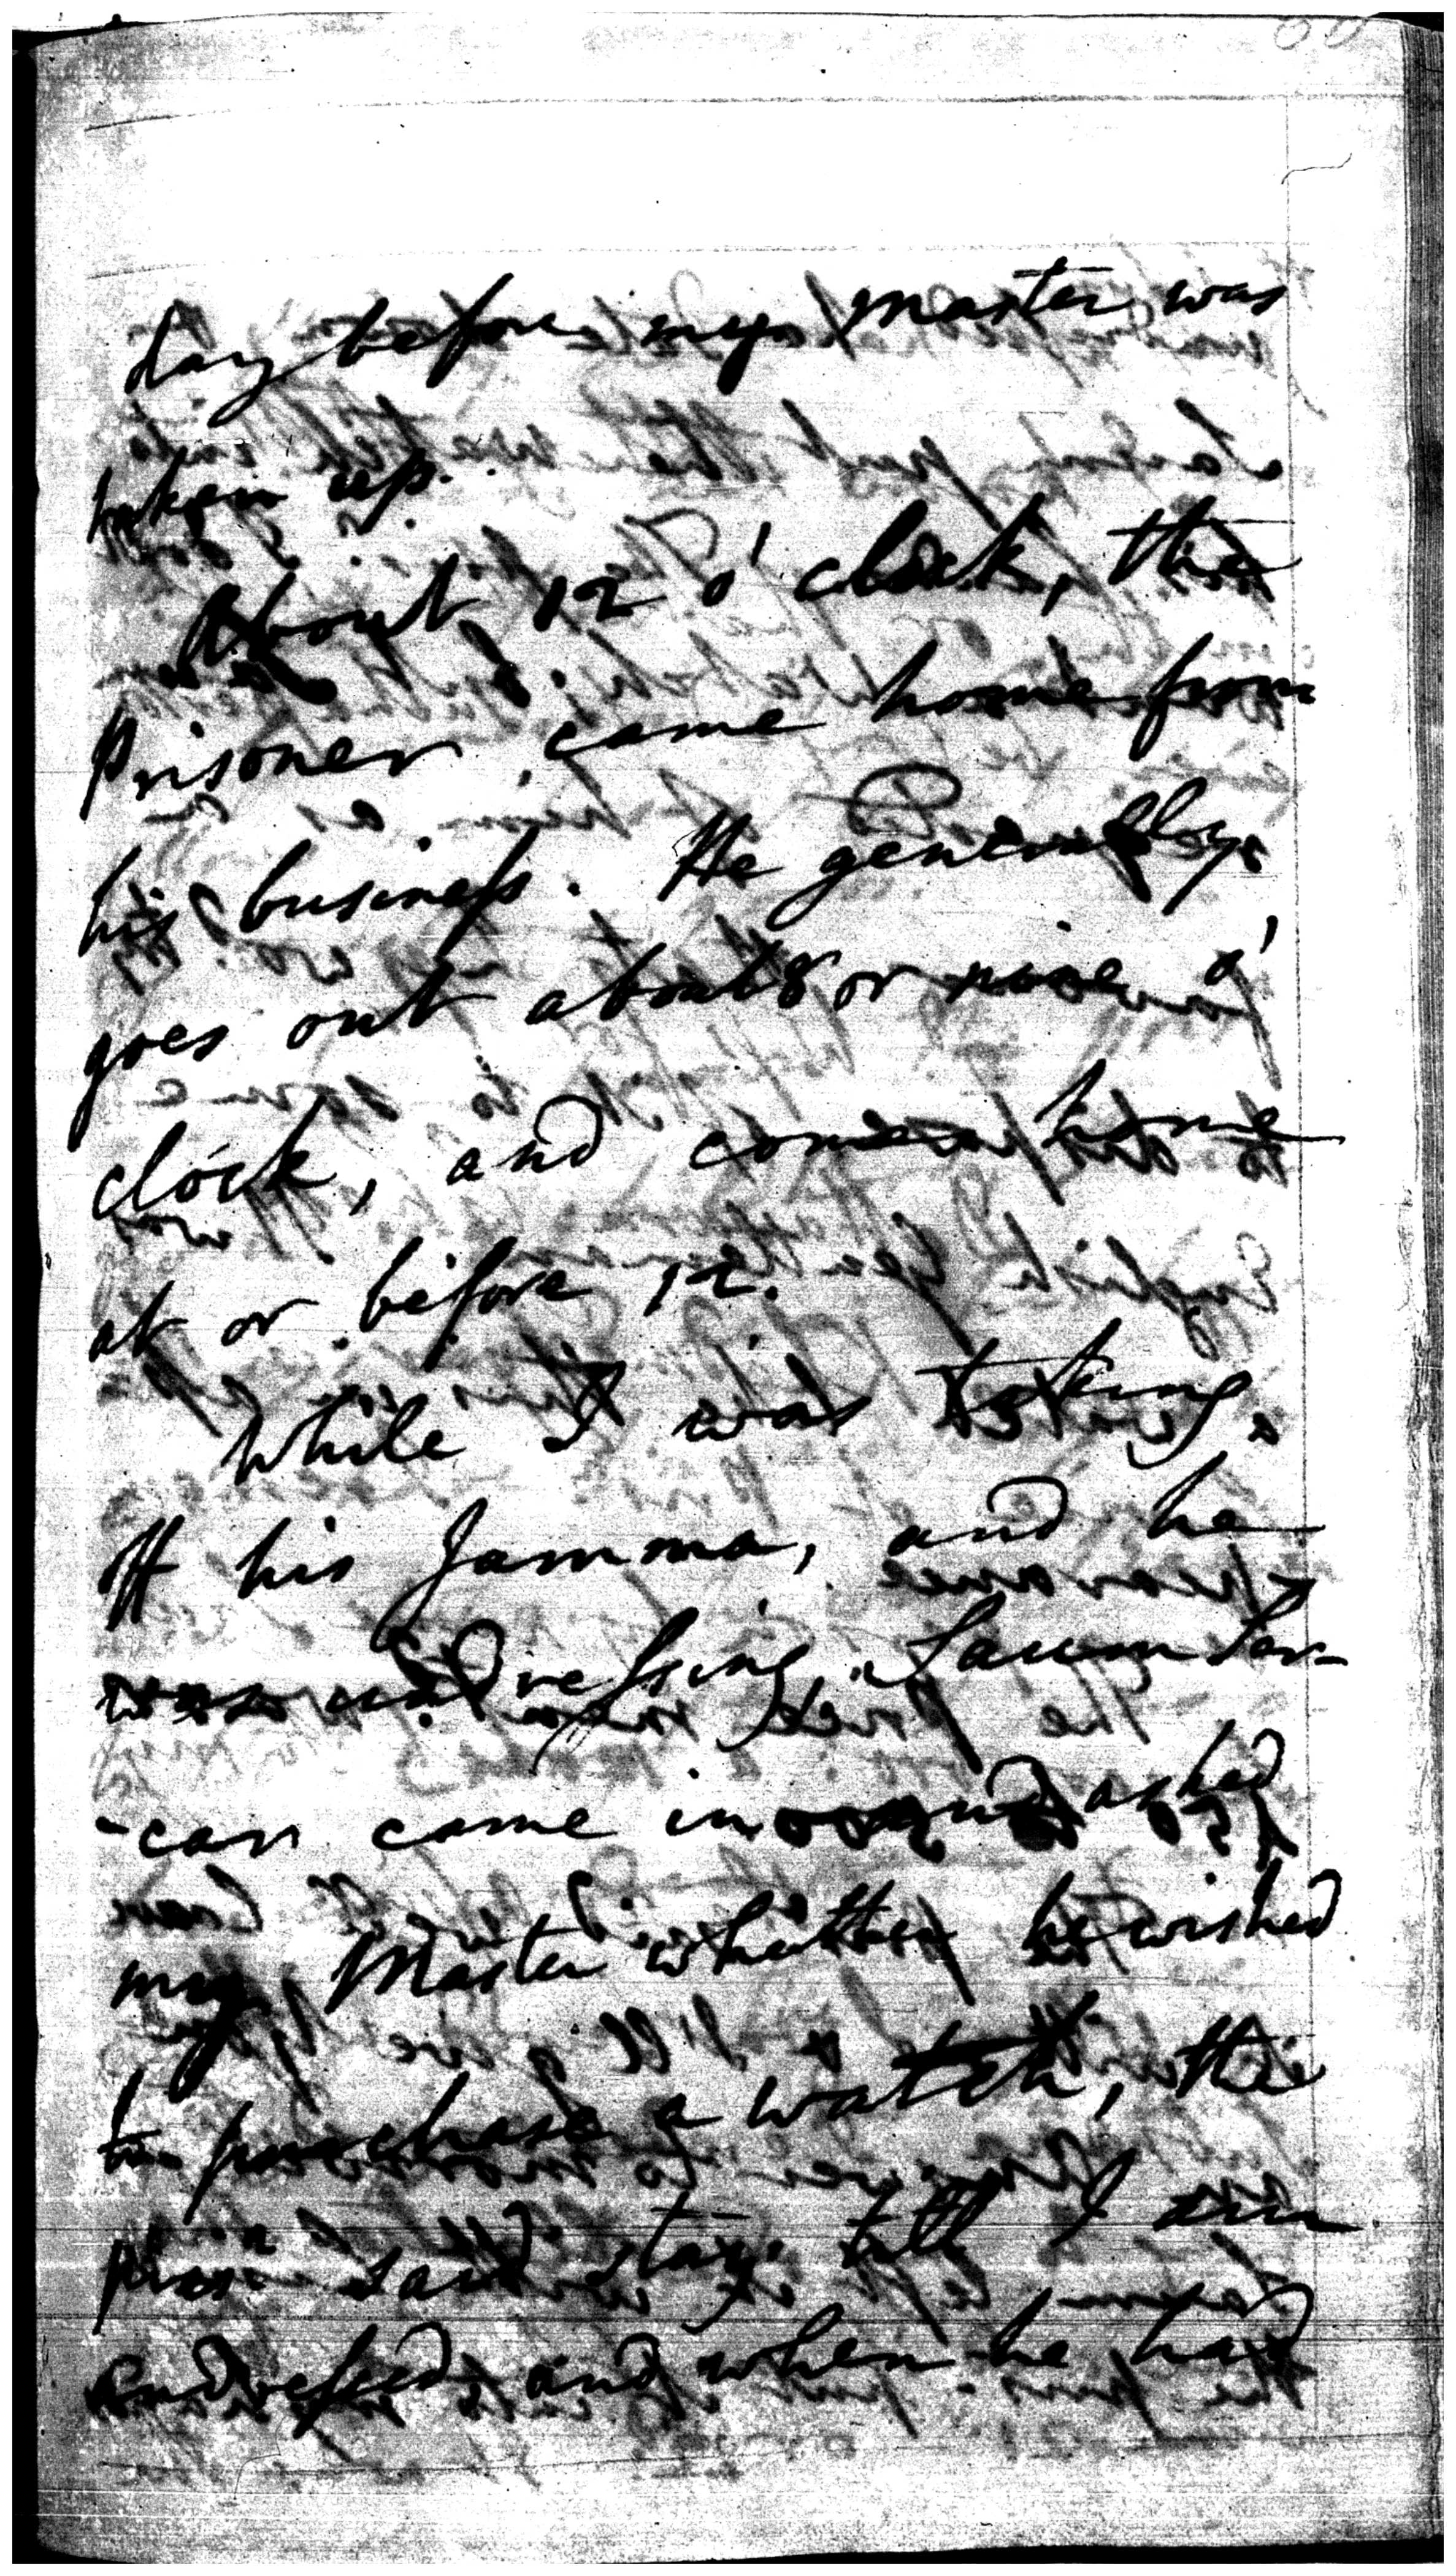 day before my Master was
taken up.
About 12 o'clock, the
Prisoner came home from
his business. He generally
goes out about 8 or nine o'
clock, and comes home
at or before 12.
While I was taking
off his Jamma, and he
was undressing, Saum Sar-
-car came in and asked
my Master whether he wished
to purchase a watch, the
prisr said stay till I am
undressed and when he had